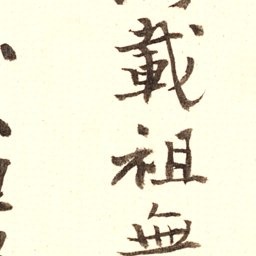 載祖無